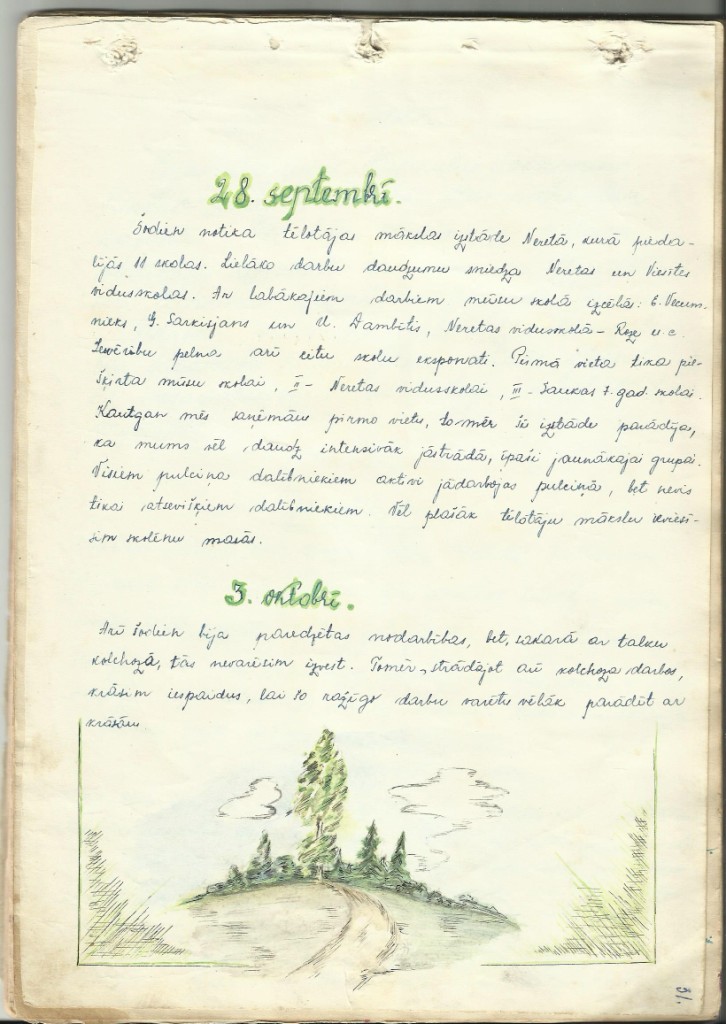 28. septembrī.
Šodien notika tēlotājas mākslas izstāde Neretā, kurā pieda-
lījās 11 skolas. Lielāko darbu daudzumu sniedza Neretas un Viesītes
vidusskolas. Ar labākajiem darbiem mūsu skolā izcēlā: E. Vecum-
nieks, G. Sarkisjans un U. Dambītis, Neretas vidusskolā - Roze u.c.
Ievērību pelna arī citu skolu eksponati. Pirmā vieta tika pie-
šķirta mūsu skolai, II - Neretas vidusskolai, III - Saukas 7. gad. skolai.
Kautgan mēs saņēmām pirmo vietu, tomēr šī izstāde parādīja,
ka mums vēl daudz intensivāk jāstrādā, īpaši jaunākajai grupai.
Visiem pulciņa dalībniekiem aktivi jādarbojas pulciņā, bet nevis
tikai atsevišķiem dalībniekiem. Vēl plašāk tēlotāju mākslu ieviesī-
sim skolēnu masās.
3. oktobrī.
Arī šodien bija paredzētas nodarbības, bet, sakarā ar talku
kolchozā, tās nevarēsim izvest. Tomēr, strādājot arī kolchoza darbos,
krāsim iespaidus, lai šo ražīgo darbu varētu vēlāk parādīt ar
krāsām
31.